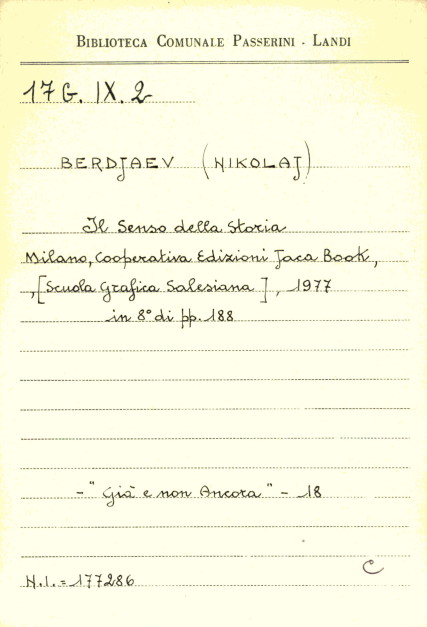 BIBLIOTECA COMUNALE PASSERINI - LANDI
17 G. IX. 2
BERDJAEV (NIKOLAJ)
Il Senso della Storia
Milano, Cooperativa Edizioni Jaca Book,
,[Scuola Grafica Salesiana], 1977
in 8° di pp. 188
- "Già e non Ancora" - 18
N.I. = 177286
C